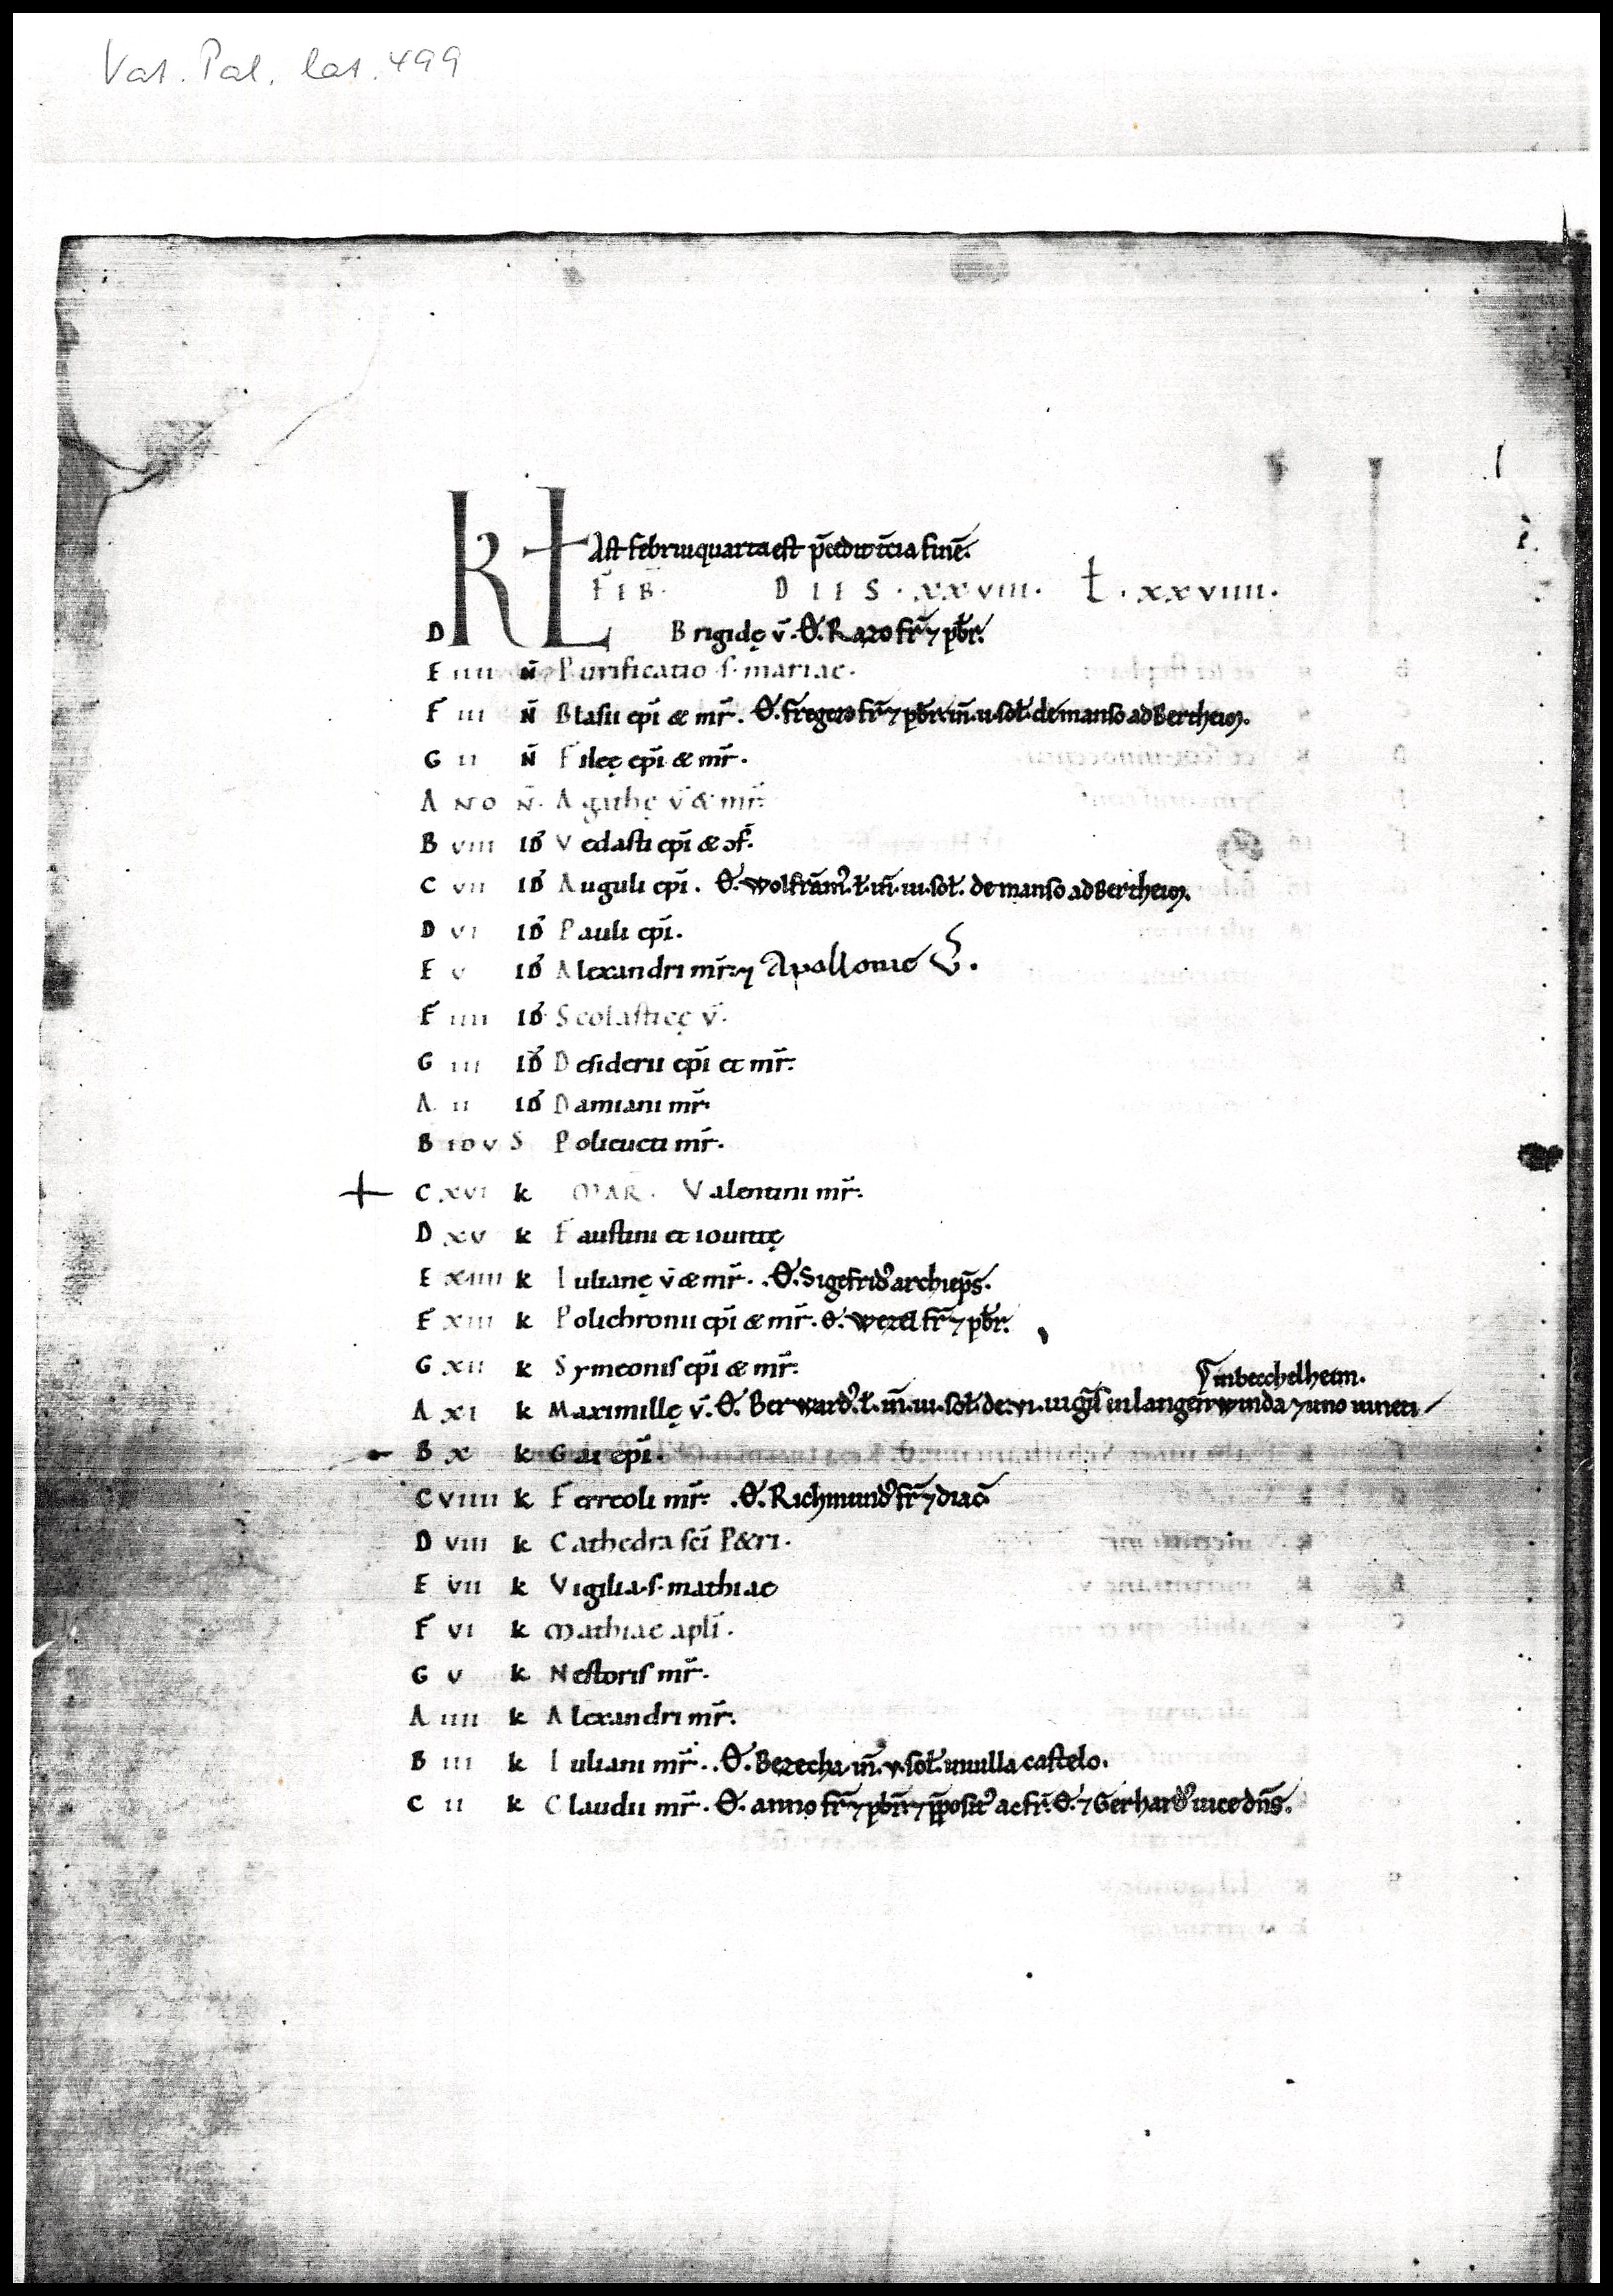 Vat. Pal. lat. 499
KL Ast februi quarta est p̄cedit t̄cia finē.
FEB. DIES . xxviii. L . xxviiii.
D Brigidę v̄. Ꝋ. Razo fr̄ ⁊ pb̄r.
E iiii N̄ Purificatio s. mariae.
F iii N̄ Blasii ep̄i & mr̄. Ꝋ. fregero fr̄ ⁊ pb̄r. in̄. u. sol̄. de manso ad Bertheim.
G ii N̄ Filęę ep̄i & mr̄.
A NO N̄. Agathę v̄ & mr̄.
B viii ID̄ Vedasti ep̄i & ↄf̄.
C vii ID̄ Auguli ep̄i. Ꝋ. wolfram᷒. l̄. in̄. iii. sol̄. de manso ad Bertheim.
D vi ID̄ Pauli ep̄i.
E v ID̄ Alexandri mr̄. ⁊ Apollonie v̄.
F iiii ID̄ Scolasticę v̄.
G iii ID̄ Desiderii ep̄i et mr̄.
A ii ID̄ Damiani mr̄.
B IDVS Policucti mr̄.
C xvi k MAR. Valentini mr̄.
D xv k Faustini et iouittę
E xiiii k Iulianę v̄ & mr̄. Ꝋ. Sigefrid᷒ archiep̄s.
F xiii k Polichronii ep̄i & mr̄. Ꝋ. wezel fr̄ ⁊ pb̄r.
G xii k Symeonis ep̄i & mr̄.
in bercchelheim.
A xi k Maximillę v̄. Ꝋ. Berward᷒. l̄. in̄. iii. sol̄. de. vi. iuḡ in langenwinda ⁊ uno uineti
B x k Gai ep̄i.
C viiii k Ferreoli mr̄. Ꝋ. Richmund᷒ fr̄ ⁊ diac̄.
D viii k Cathedra sc̄i P&ri.
E vii k Vigilia s. mathiae
F vi k Mathiae apl̄i.
G v k Nestoris mr̄.
A iiii k Alexandri mr̄.
B iii k Iuliani mr̄. Ꝋ. Bezecha in̄. v. sol̄. in uilla castelo.
C ii k Claudii mr̄. Ꝋ. anno fr̄ ⁊ pb̄r ⁊ p̄posit᷒ ac fr̄. Ꝋ. ⁊ Gerhard᷒ uicedn̄s.